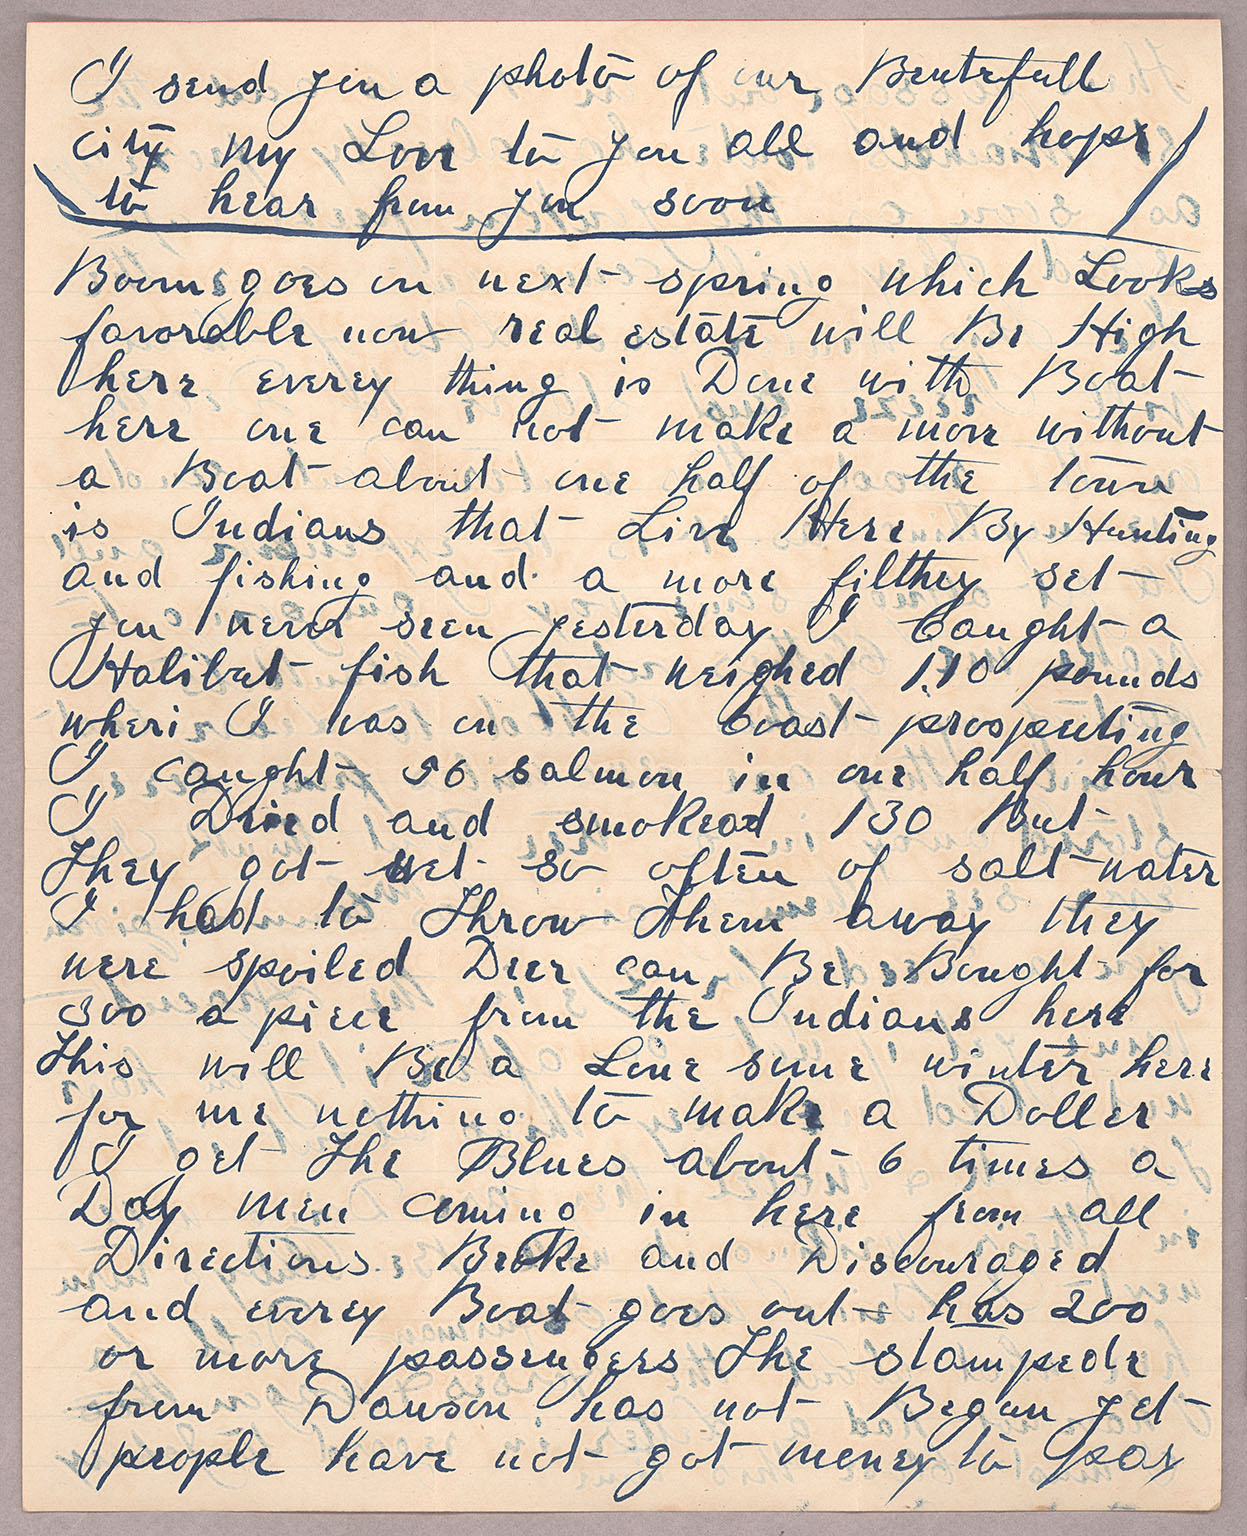 I send you a photo of our Beutefull
city my Love to you all and hope
to hear from you soon
Booms goes on next spring which Looks
favorable now real estate will Be High
here everey thing is Done with Boat
here one can not make a move without
a Boat about one half of the town
is Indians that Live Here By Hunting
and fishing and a more filthey set
you never seen yesterday I Caught a
Halibut fish that weighed 110 pounds
when I was on the Coast prospecting
I caught 56 salmon in one half hour
I Dried and smokead 130 But
They got wet so often of salt water
I had to Throw Them away they
were spoiled Deer can Be Bought for
300 a piece from the Indians here
This will Be a Lone some winter here
for me nothing to make a Doller
I get The Blues about 6 times a
Day men coming in here from all
Directions Broke and Discouraged
and everey Boat goes out has 200
or more passengers The stampede
from Dawson has not Began yet
people have not got money to pay